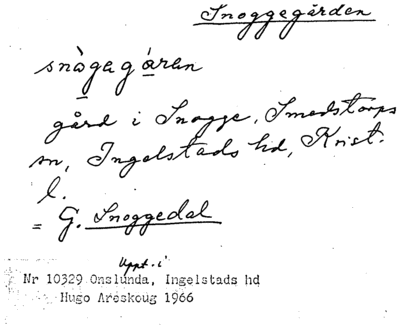 Snoggegården
snàgagáran
gård i Snogge, Smedstorps
sn, Ingelstads hd, Krist.
l.
= G. Snoggedal
Uppt. i
Nr 10329 Onslunda, Ingelstads hd
Hugo Areskoug 1966